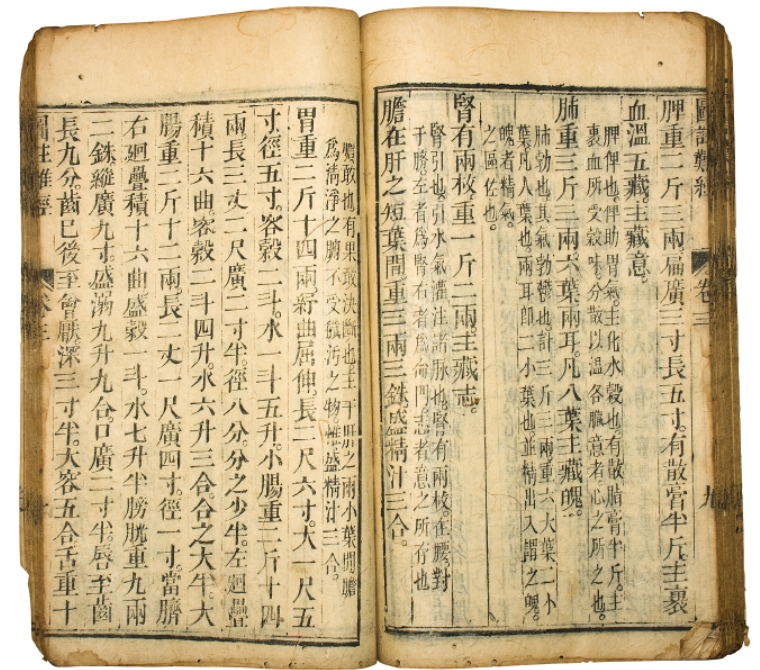 圖註難經 卷三 九
脾重二斤三兩。扁廣三寸長五寸。有散膏半斤。主裹
血溫五藏。主藏意。
脾俾也。俾助胃氣。主化水穀也。有散脂膏半斤。主
裹血所受穀味分散以溫各臟意者心之所之也。
肺重三斤三兩。六葉兩耳。凡八葉主藏魄。
肺勃也。其氣勃鬱也。計三斤三兩重六大葉二小
葉凡八葉也。兩耳即二小葉也並精出入謂之魄。
魄者精氣。
之匡佐也。
腎有兩枚重一斤二兩。主藏志。
腎引也。引水氣灌注諸脉也。腎有兩枚。在腰對
于臍。左者爲腎右者爲命門志者意之所存也
膽在肝之短葉間。重三兩三銖。盛精汁三合。
膽敢也有果敢決斷也主于肝之兩小葉間膽
爲淸淨之腑不受穢汚之物惟盛精汁三合。
胃重二斤十四兩紆曲屈伸。長二尺六寸。大一尺五
寸。徑五寸。容穀二斗。水一斗五升。小腸重二斤十四
兩長三丈二尺廣二寸半。徑八分。分之少半。左廻疊
積十六曲。容穀二斗四升。水六升三合。合之大半。大
腸重二斤十二兩長二丈一尺廣四寸。徑一寸。當臍
右廻疊積十六曲盛穀一斗。水七升半膀胱重九兩
二銖縱廣九寸。盛溺九升九合。口廣二寸半。唇至齒
長九分。齒已後至會厭深三寸半。大容五合舌重十
圖註難經 卷三